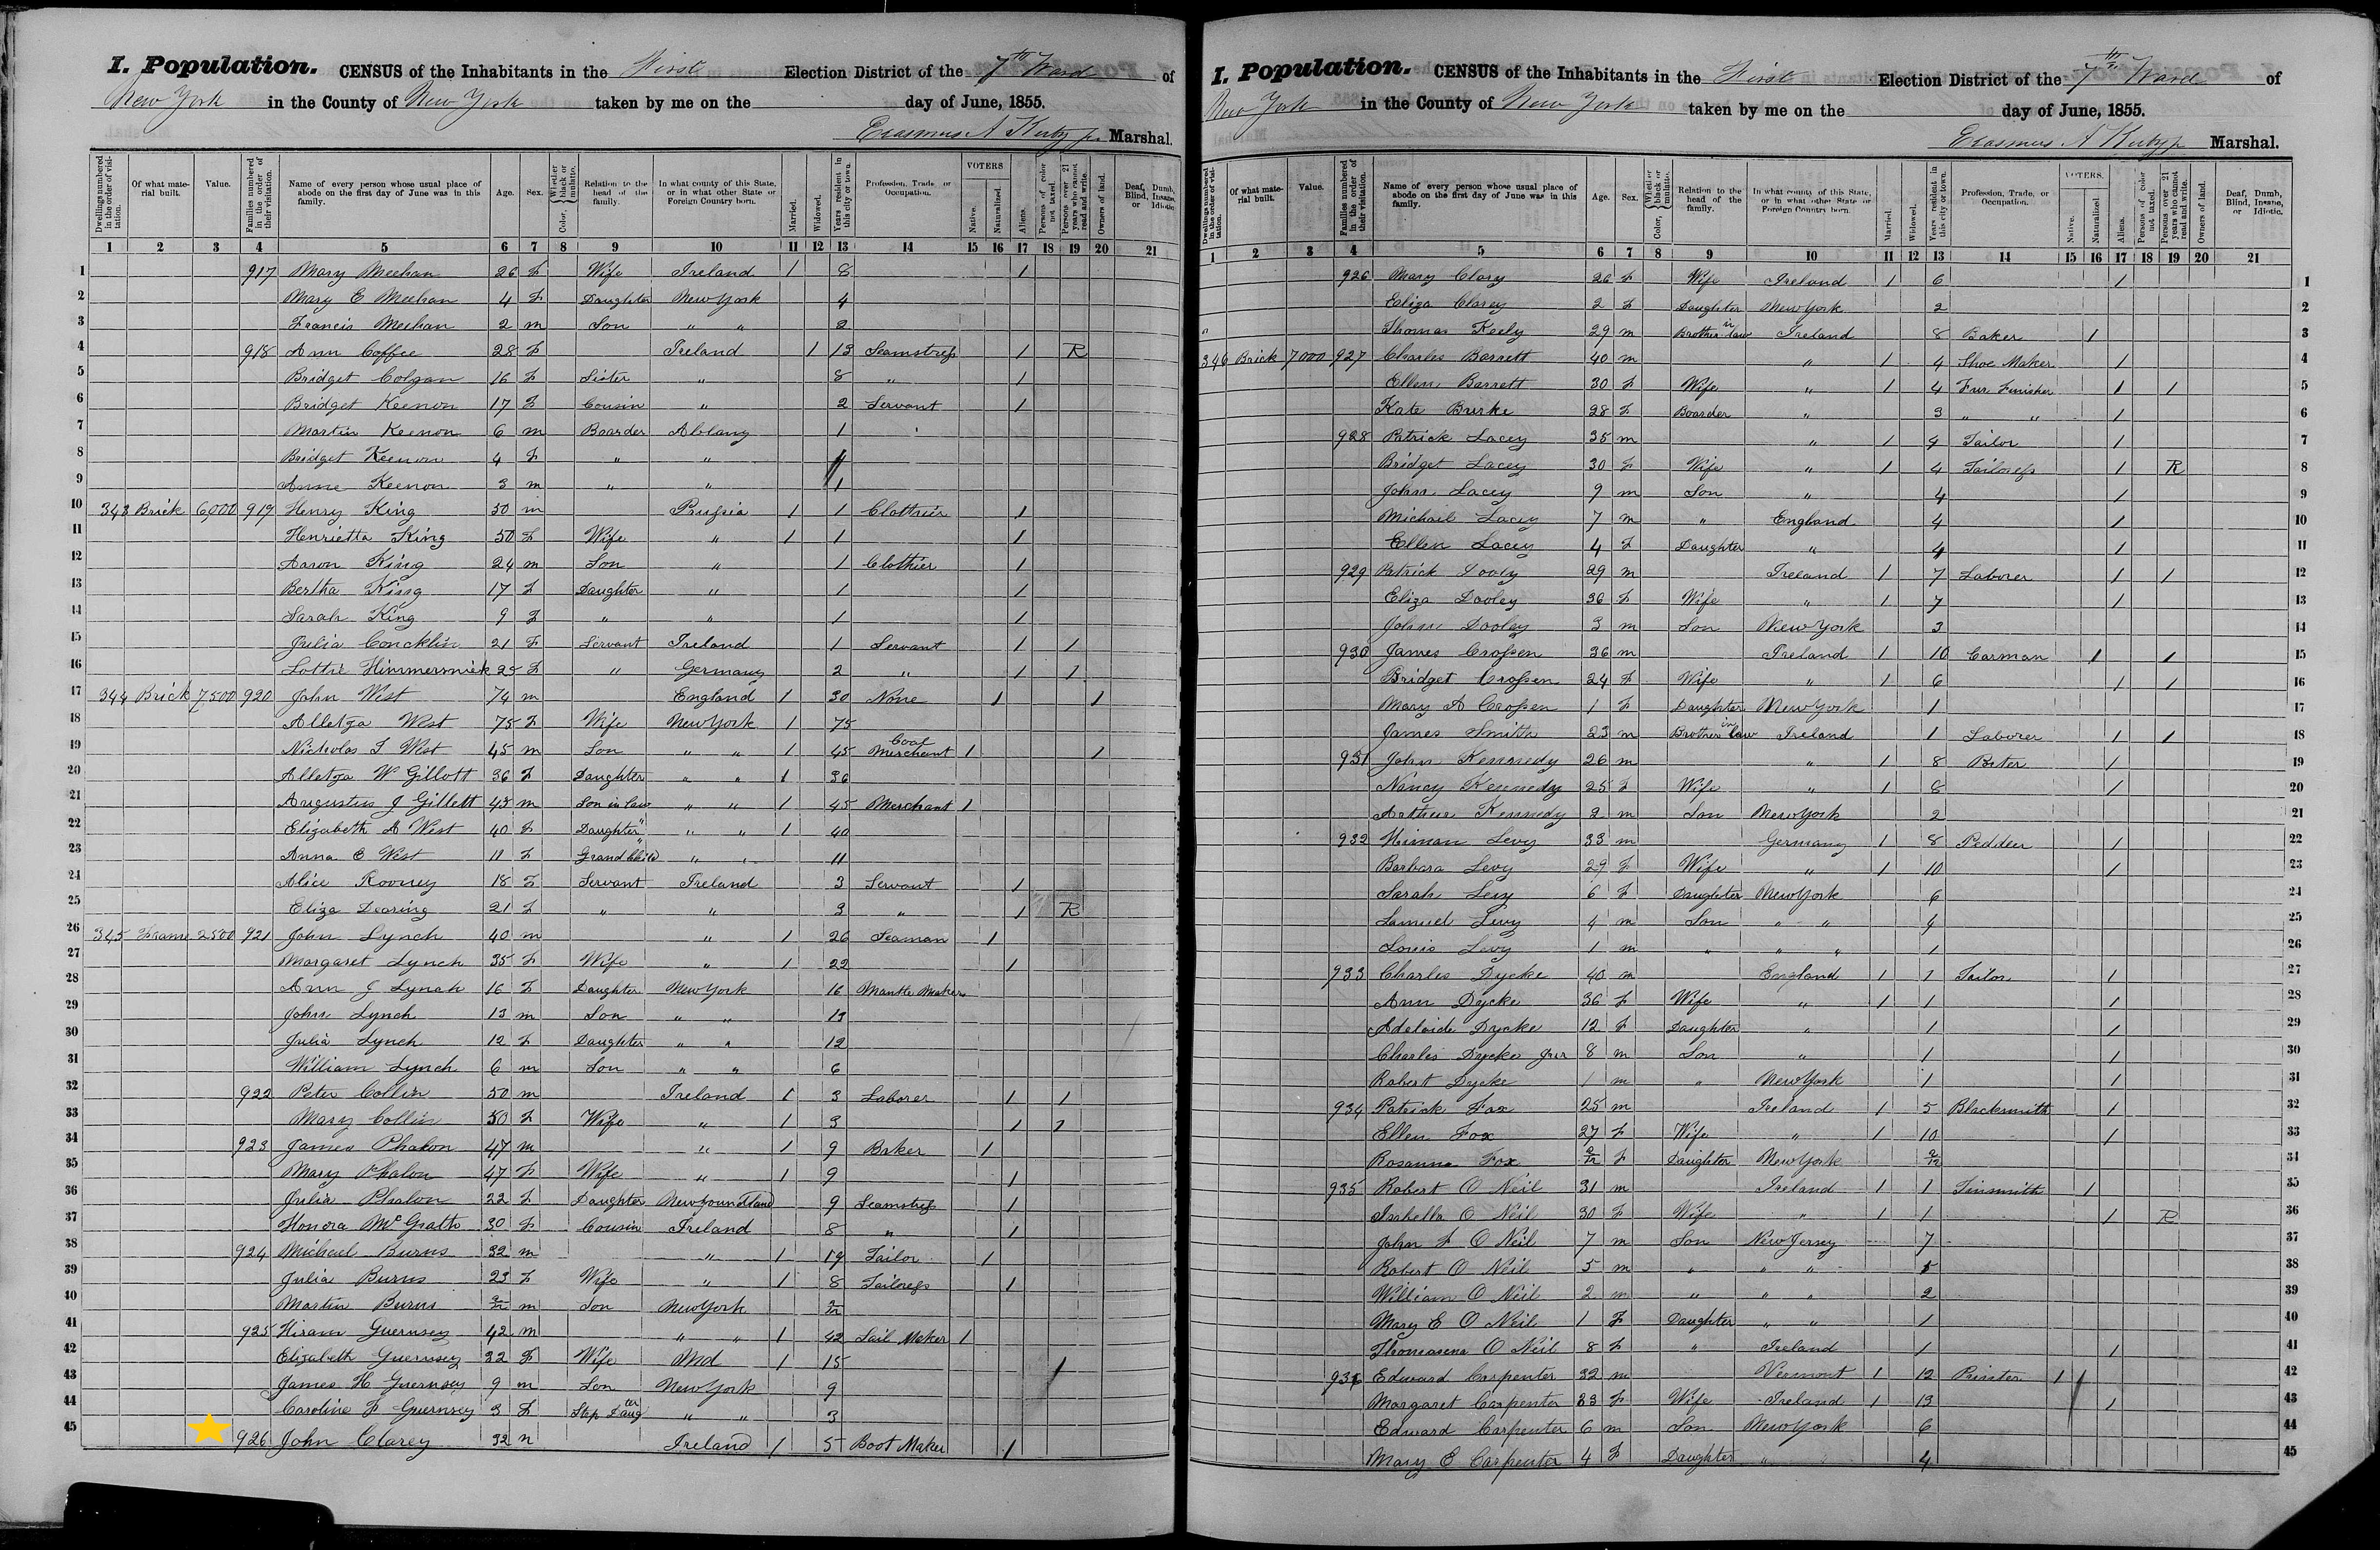 I. Population. CENSUS of the Inhabitants in the First Election District of the 7th Ward of
New York in the County of New York taken by me on the day of June, 1855.
Erasmus A Kirby Jr. Marshal.
Dwellings numbered in the order of visitation. Of what material built. Value. Families numbered in the order of their visitation. Name of every person whose usual place of abode on the first day of June was in this family. Age. Sex. Color, Whether black or mulatto. Relation to the head of the family. In what county of this State, or in what other State or Foreign Country born. Married. Widowed. Years resident in this city or town. Profession, Trade, or Occupation. VOTERS Native. Naturalized. Aliens. Persons of color not taxed. Persons over 21 years who cannot read and write. Owners of land. Deaf, Dumb, Blind, Insane, or Idiotic.
1 2 3 4 5 6 7 8 9 10 11 12 13 14 15 16 17 18 19 20 21
1 917 Mary Meehan 26 F Wife Ireland 1 8 1
2 Mary E Meehan 4 F Daughter New York 4
3 Francis Meehan 2 m Son " " 2
4 918 Ann Coffee 28 F Ireland 1 13 Seamstress 1 R
5 Bridget Colgan 16 F Sister " 8 " 1
6 Bridget Keenon 17 F Cousin " 2 Servant 1
7 Martin Keenon 6 m Boarder Albany 1
8 Bridget Keenon 4 F " "
9 Anne Keenon 3 m " " 1
10 343 Brick 6,000 919 Henry King 50 m Prussia 1 1 Clothier 1
11 Henrietta King 50 F Wife " 1 1 1
12 Aaron King 24 m Son " 1 Clothier 1
13 Bertha King 17 F Daughter " 1 1
14 Sarah King 9 F " " 1 1
15 Julia Concklin 21 F Servant Ireland 1 Servant 1 1
16 Lottie Himmersmick 25 F " Germany 2 " 1 1
17 344 Brick 7500 920 John West 74 m England 1 30 None 1 1
18 Alletza West 75 F Wife New York 1 75
19 Nicholas T West 45 m Son " " 1 45 Coal Merchant 1 1
20 Alletza W Gillott 36 F Daughter " " 1 36
21 Augustus J Gillett 45 m Son in law " " 1 45 Merchant 1
22 Elizabeth A West 40 F Daughter " " " 1 40
23 Anna E West 11 F Grand Child " " 11
24 Alice Rooney 18 F Servant Ireland 3 Servant 1
25 Eliza Dearing 21 F " " 3 " 1 R
26 345 Frame 2500 921 John Lynch 40 m " 1 26 Seaman 1
27 Margaret Lynch 35 F Wife " 1 22 1
28 Ann J Lynch 16 F Daughter New York 16 Mantle Maker
29 John Lynch 13 m Son " " 13
30 Julia Lynch 12 F Daughter " " 12
31 William Lynch 6 m Son " " 6
32 922 Peter Collin 50 m Ireland 1 3 Laborer 1 1
33 Mary Collin 50 F Wife " 1 3 1 1
34 923 James Phalon 47 m " 1 9 Baker 1
35 Mary Phalon 47 F Wife " 1 9 1
36 Julia Phalon 22 F Daughter Newfoundland 9 Seamstress 1
37 Honora McGrath 30 F Cousin Ireland 8 " 1
38 924 Michael Burns 32 m " 1 19 Tailor 1
39 Julia Burns 23 F Wife " 1 8 Tailoress 1
40 Martin Burns m Son New York
41 925 Hiram Guernsey 42 m " " 1 42 Sail Maker 1
42 Elizabeth Guernsey 32 F Wife Md 1 15 1
43 James H Guernsey 9 m Son New York 9
44 Caroline F Guernsey 3 F Step Daugter " " 3
45 926 John Clarey 32 Ireland 1 5 Boot Maker 1
I. Population. CENSUS of the Inhabitants in the First Election District of the 7th Ward of
New York in the County of New York taken by me on the day of June, 1855.
Erasmus A Kirby Jr Marshal.
Dwellings numbered in the order of visitation. Of what material built. Value. Families numbered in the order of their visitation. Name of every person whose usual place of abode on the first day of June was in this family. Age. Sex. Color, Whether black or mulatto. Relation to the head of the family. In what county of this State, or in what other State or Foreign Country born. Married. Widowed. Years resident in this city or town. Profession, Trade, or Occupation. VOTERS. Native. Naturalized. Aliens. Persons of color not taxed. Persons over 21 years who cannot read and write. Owners of land. Deaf, Dumb, Blind, Insane, or Idiotic.
1 2 3 4 5 6 7 8 9 10 11 12 13 14 15 16 17 18 19 20 21
926 Mary Clary 26 F Wife Ireland 1 6 1 1
Eliza Clarey 2 F Daughter New York 2 2
" Thomas Keely 29 m Brother in law Ireland 8 Baker 1 3
346 Brick 7000 927 Charles Barrett 40 m " 1 4 Shoe Maker 1 4
Ellen Barrett 30 F Wife " 1 4 Fur Finisher 1 1 5
Kate Burke 28 F Boarder " 3 " " 1 6
928 Patrick Lacey 35 m " 1 4 Tailor 1 7
Bridget Lacey 30 F Wife " 1 4 Tailoress 1 R 8
John Lacey 9 m Son " 4 1 9
Michael Lacey 7 m " England 4 1 10
Ellen Lacey 4 F Daughter " 4 1 11
929 Patrick Dooly 29 m Ireland 1 7 Laborer 1 1 12
Eliza Dooley 36 F Wife " 1 7 1 13
John Dooley 3 m Son New York 3 14
930 James Crossen 36 m Ireland 1 10 Carman 1 1 15
Bridget Crossen 24 F Wife " 1 6 1 1 16
Mary A Crossen 1 F Daughter New York 1 17
James Smith 23 m Brother in law Ireland 1 Laborer 1 1 18
931 John Kennedy 26 m " 1 8 Poter 1 19
Nancy Kennedy 25 F Wife " 1 8 1 20
Arthur Kennedy 2 m Son New York 2 21
932 Hirnan Levy 33 m Germany 1 8 Pedder 1 22
Barbara Levy 29 F Wife " 1 10 1 23
Sarah Levy 6 F Daughter New York 6 24
Samuel Levy 4 m Son " " 4 25
Louis Levy 1 m " " " 1 26
933 Charles Dycke 40 m England 1 1 Tailor 1 27
Ann Dycke 36 F Wife " 1 1 1 28
Adelaide Dycke 12 F Daughter " 1 1 29
Charles Dycke Jnr 8 m Son " 1 1 30
Robert Dycke 1 m " New York 1 1 31
934 Patrick Fox 25 m Ireland 1 5 Blacksmith 1 32
Ellen Fox 27 F Wife " 1 10 1 33
Rosanna Fox F Daughter New York 34
935 Robert O Neil 31 m Ireland 1 1 Tinsmith 1 35
Isabella O Neil 30 F Wife " 1 1 1 R 36
John F O Neil 7 m Son New Jersey 7 37
Robert O Neil 5 m " " " 5 38
William O Neil 2 m " " " 2 39
Mary E O Neil 1 F Daughter " " 1 40
Thomasena O Neil 8 F " Ireland 1 1 41
936 Edward Carpenter 32 m Vermont 1 12 Printer 1 42
Margaret Carpenter 33 F Wife Ireland 1 13 1 43
Edward Carpenter 6 m Son New York 6 44
Mary E Carpenter 4 F Daughter " 4 45